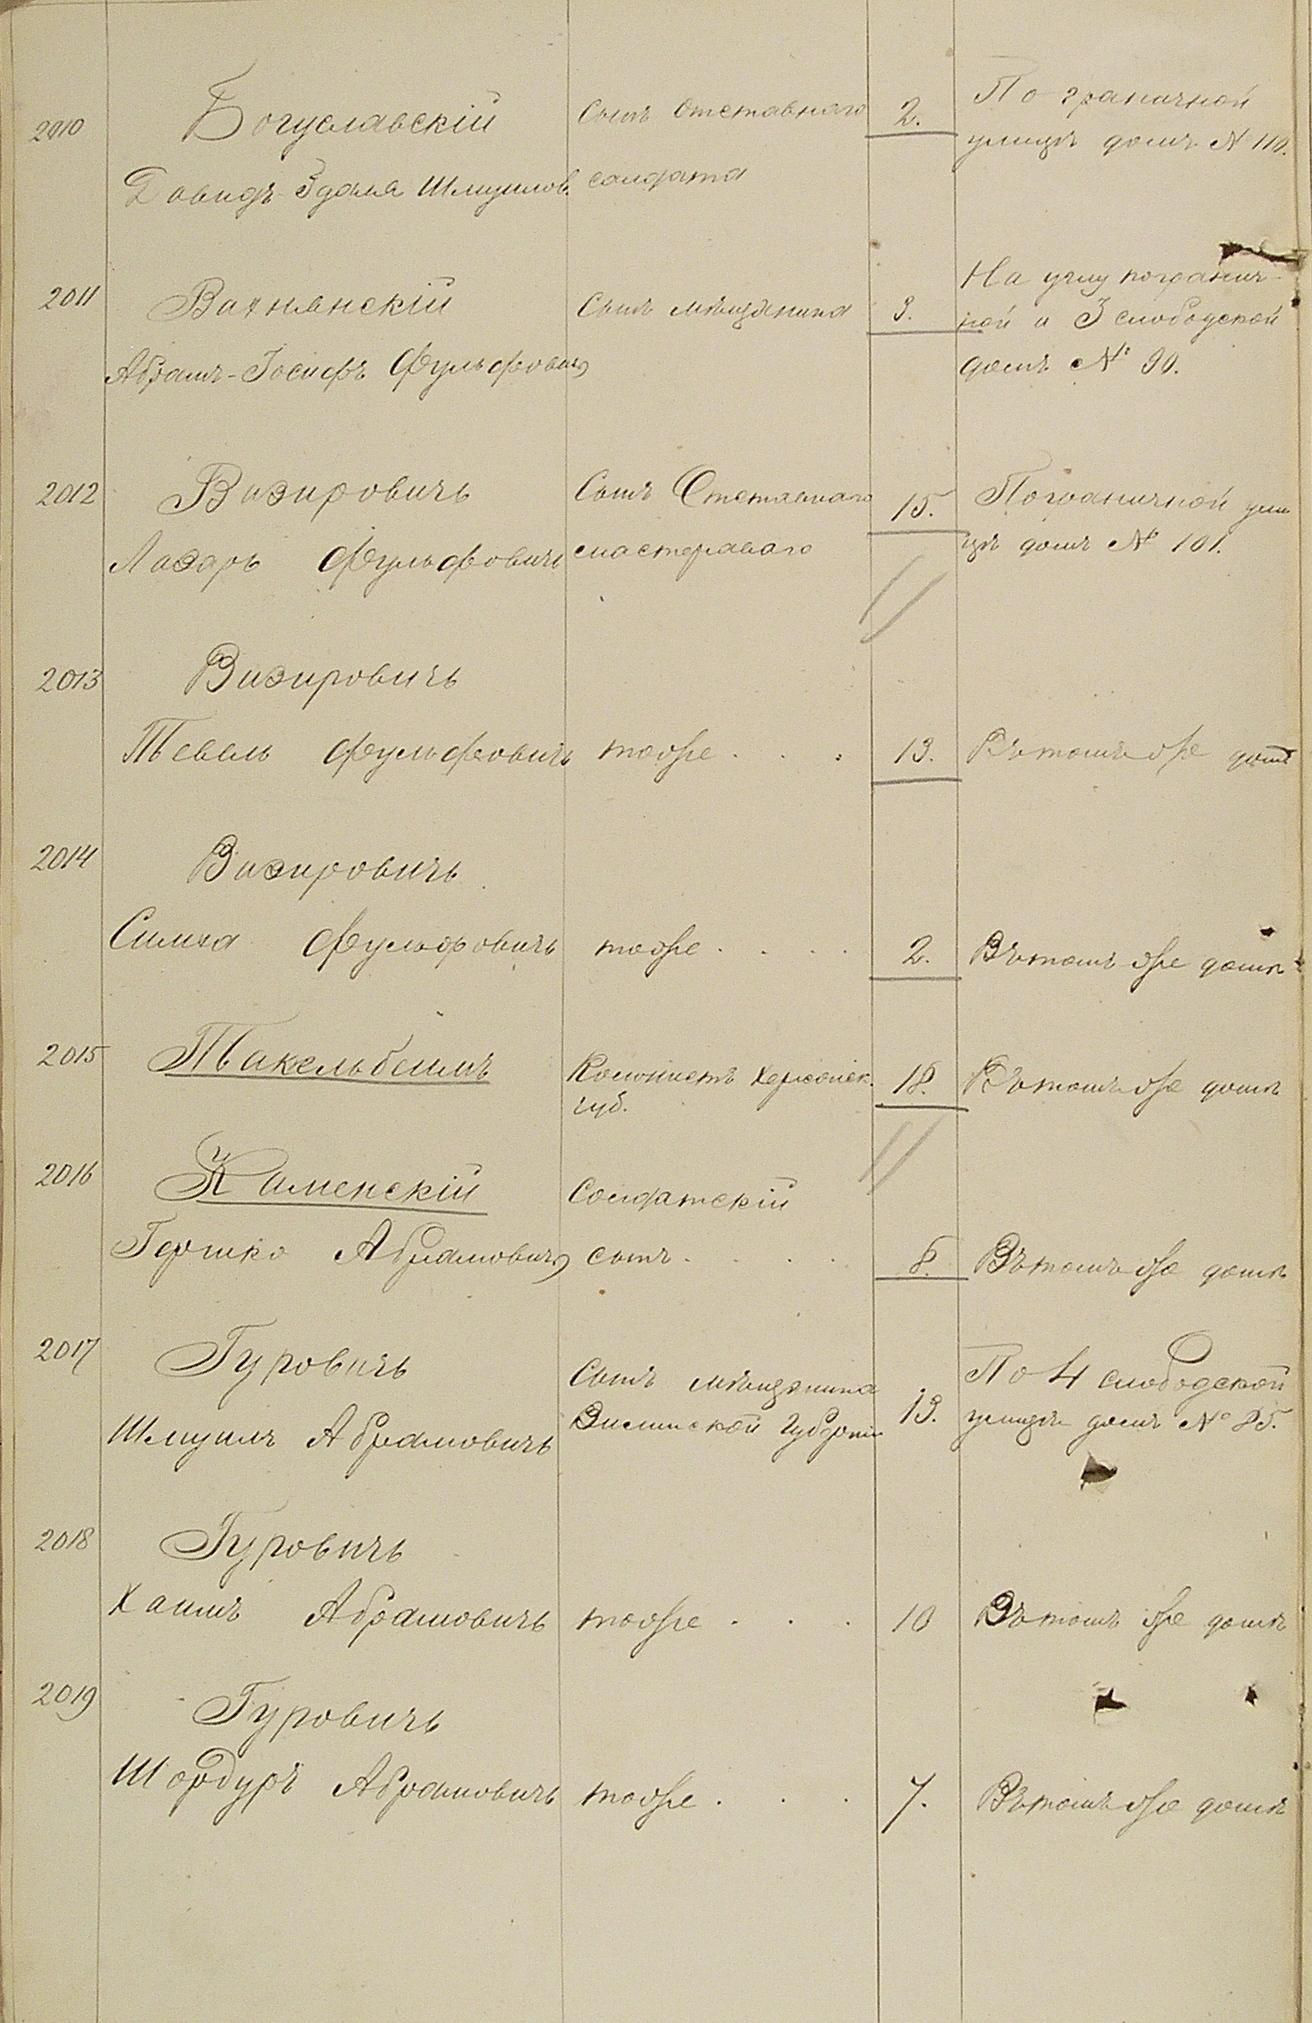 2010 Богуславскій Сынъ Отставнаго 2. По граничной
улицѣ домъ № 110.
Давидъ-Эдаля Шмуилов. солдата
2011 Вахнянскій Сынъ мѣщанина 3. На углу погранич-
ной и 3 слободской
Абрамъ-Іосифъ Фульфовичъ домъ № 90.
2012 Визировичъ Сынъ Отставнаго 15. Пограничной ули
Лазарь Фульфовичъ мастероваго цѣ домъ № 101.
2013 Визировичъ
Тевель Фульфовичъ тоже . . . 13. Въ томъ же домѣ
2014 Визировичъ
Симха Фульфовичъ тоже . . . . 2. Въ томъ же домѣ
2015 Такельбеимъ Колонистъ Херсонск. 18. Въ томъ же домѣ
губ.
2016 Каменскій Солдатскій
Гершко Абрамовичъ сынъ . . . . 8. Въ томъ же домѣ
2017 Гуровичъ Сынъ мѣщанина 13. По 4 слободской
Шмуилъ Абрамовичъ Виленской Губерніи улицѣ домъ № 85.
2018 Гуровичъ
Хаимъ Абрамовичъ тоже . . . 10 Въ томъ же домѣ
2019 Гуровичъ
Абрамовичъ тоже . . . 7. Въ томъ же домѣ